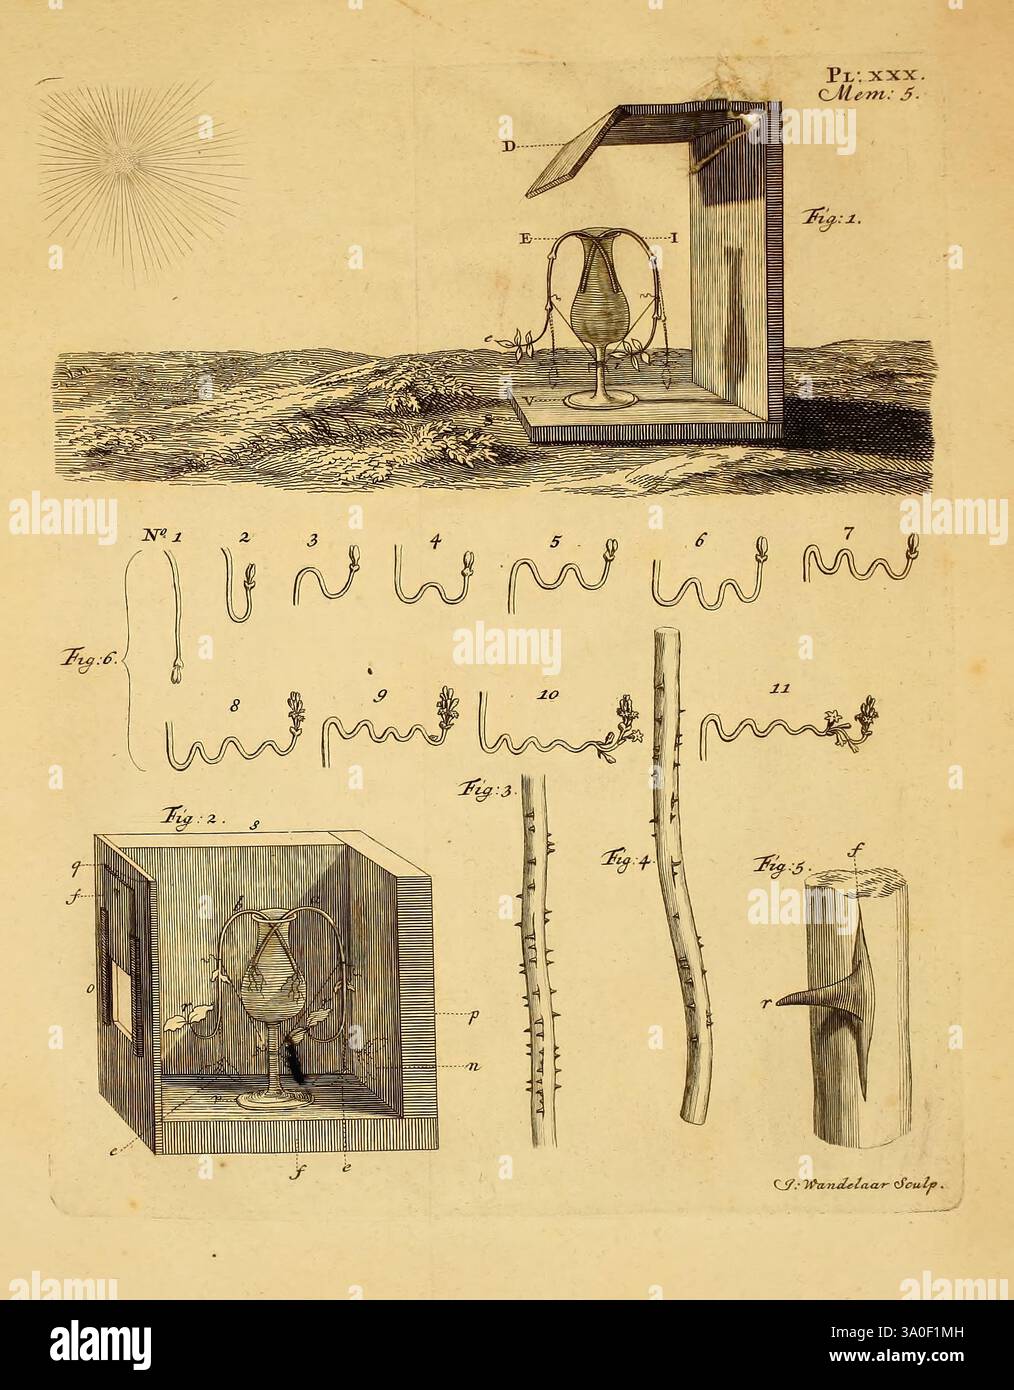 Pl: XXX.
Mem: 5.
D
Fig: 1.
E
I
e
V
No. 1 2 3 4 5 6 7
Fig: 6.
8 9 10 11
Fig: 3.
Fig: 2.
s
Fig: 4.
Fig: 5.
f
q
f
o
r
r
r
p
n
e
f
e
J: Wandelaar Sculp.
alamy
alamy
Image ID: 3A0F1MH
www.alamy.com